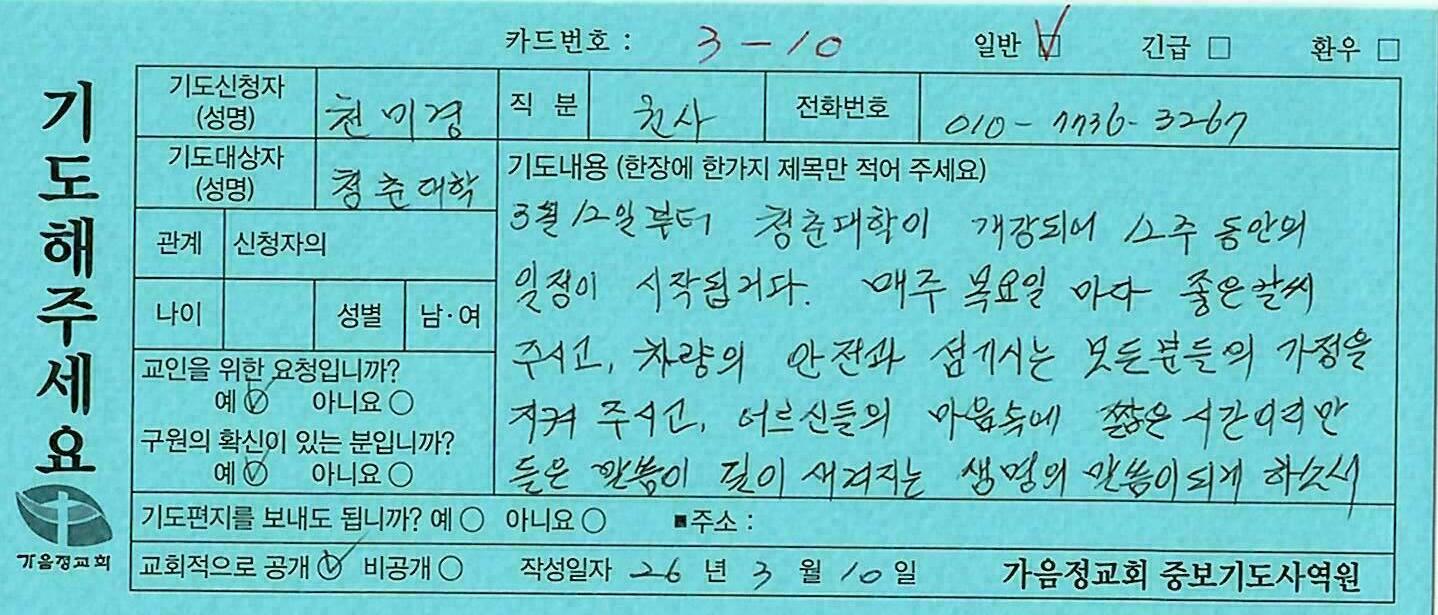 카드번호 : 3-10 일반 ☑ 긴급 □ 환우 □
기도해주세요
기도신청자 (성명) 천미경 직 분 권사 전화번호 010-7736-3267
기도대상자 (성명) 청춘대학
관계 신청자의
나이 성별 남·여
교인을 위한 요청입니까?
예 ☑ 아니요 ○
구원의 확신이 있는 분입니까?
예 ☑ 아니요 ○
기도내용 (한장에 한가지 제목만 적어 주세요)
3월 12일부터 청춘대학이 개강되어 12주 동안의
일정이 시작됩니다. 매주 목요일 마다 좋은날씨
주시고, 차량의 안전과 섬기시는 모든분들의 가정을
지켜 주시고, 어르신들의 마음속에 짧은 시간이지만
들은 말씀이 깊이 새겨지는 생명의 말씀이되게 하소서
기도편지를 보내도 됩니까? 예 ○ 아니요 ○ ■주소 :
교회적으로 공개 ☑ 비공개 ○ 작성일자 26 년 3 월 10 일 가음정교회 중보기도사역원
가음정교회